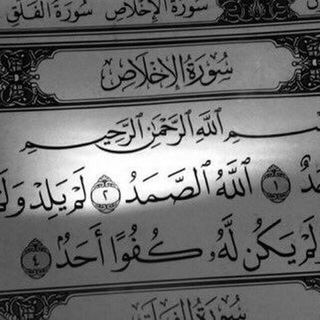 سُورَةُ الإِخْلَاصِ سُورَةُ الفَلَقِ
سُورَةُ الإِخْلَاصِ
ـسْمِ ٱللَّهِ ٱلرَّحْمَٰنِ ٱلرَّحِيمِ
ـدٌ ١ ٱللَّهُ ٱلصَّمَدُ ٢ لَمْ يَلِدْ وَلَـ
لَمْ يَكُن لَّهُۥ كُفُوًا أَحَدٌۢ ٤
سُورَةُ الفَلَقِ